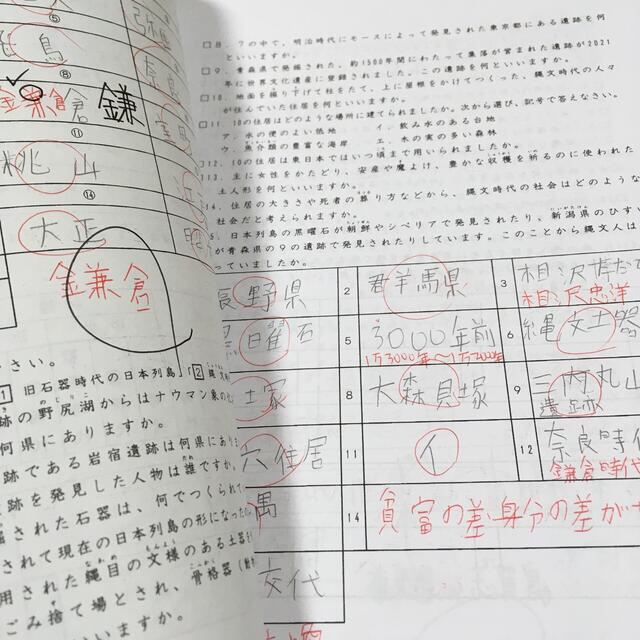 ⑤
弥
鳥
⑧
鎌倉
鎌
⑪
桃山
⑭
大正
鎌倉
さい。
1 旧石器時代の日本列島 2
跡の野尻湖からはナウマン象の化
何県にありますか。
跡である岩宿遺跡は何県にありま
跡を発見した人物は誰ですか。
掘された石器は、何でつくられ
されて現在の日本列島の形になった
用された縄目の文様のある土器を
ごみ捨て場とされ、骨格器
いいますか。
□8．7の中で，明治時代にモースによって発見された東京都にある遺跡を何
といいますか。
□9．青森県で発掘された，約1500年間にわたって集落が営まれた遺跡が2021
年に世界文化遺産に登録されました。この遺跡を何といいますか。
□10．地面を掘り下げて柱をたて，上に屋根をかけてつくった，縄文時代の人々
が住んでいた住居を何といいますか。
□11．10の住居はどのような場所に建てられましたか。次から選び，記号で答えなさい。
ア．水の便のよい低地　イ．飲み水のある台地
ウ．魚介類の豊富な海岸　エ．木の実の多い森林
□12．10の住居は東日本ではいつ頃まで用いられましたか。
13．主に女性をかたどり，安産や魔よけ，豊かな収穫を祈るのに使われた
土人形を何といいますか。
14．住居の大きさや死者の葬り方などから，縄文時代の社会はどのような
社会だと考えられますか。
日本列島の黒曜石が朝鮮やシベリアで発見されたり，新潟県のひすい
が青森県の9の遺跡で発見されたりしています。このことから縄文人は
っていましたか。
長野県 2 群馬県 3 相沢
相沢忠洋
曜石 5 3000年前 6 縄文土器
1万3000年〜1万2000年
塚 8 大森貝塚 9 三内丸山
遺跡
穴住居 11 イ 12 奈良時代
鎌倉時代
偶 14 貧富の差・身分の差が
交代